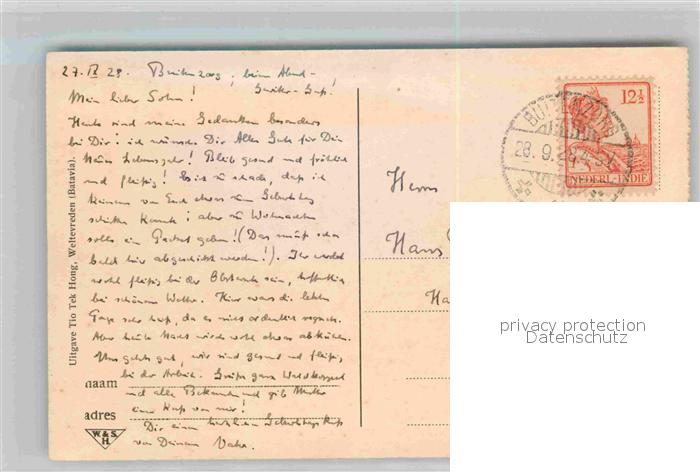 27. IX 28. Buitenzorg, beim Abend-
Gewitter-Guß!
Mein lieber Sohn!
Heute sind meine Gedanken besonders
bei Dir! ich wünsche Dir Alles Gute für Dein
Neues Lebensjahr! Bleib gesund und fröhlich
und fleißig! Es ist zu schade, daß ich
keinem von Euch etwas zum Geburtstag
schicken kann; aber zu Weihnachten
solls ein Packet geben! (Das muß schon
bald hier abgeschickt werden!). Ihr werdet
wohl fleißig bei der Obsternte sein, hoffentlich
bei schönem Wetter. Hier wars die letzten
Tage sehr heiß, da es nicht ordentlich regnete.
Aber heute Nacht wirds wohl etwas abkühlen.
Uns gehts gut, wir sind gesund und fleißig
bei der Arbeit. Grüße ganz
und alle Bekannten und gib Mutter
einen Kuß von mir!
Dir einen herzlichen Geburtstagskuß
von Deinem Vater.
Uitgave Tio Tek Hong, Weltevreden (Batavia).
naam
adres
W & S
H
BUITENZORG
28.9.28.4-5
12½
NEDERL-INDIE
Herrn
Hans
Ha
privacy protection
Datenschutz